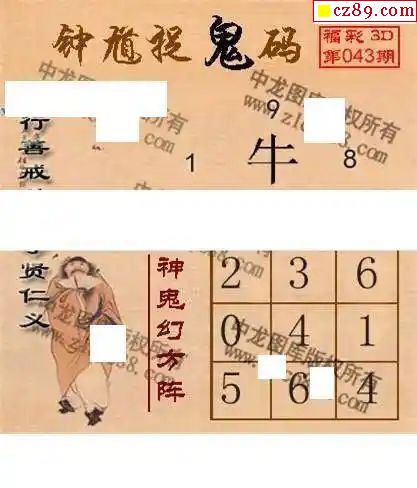 cz89.com
钟馗捉鬼码
福彩3D
第043期
中龙图库版权所有
9
行善戒
1 牛 8
贤仁义
神鬼幻方阵
2 3 6
0 4 1
5 6 4
中龙图库版权所有